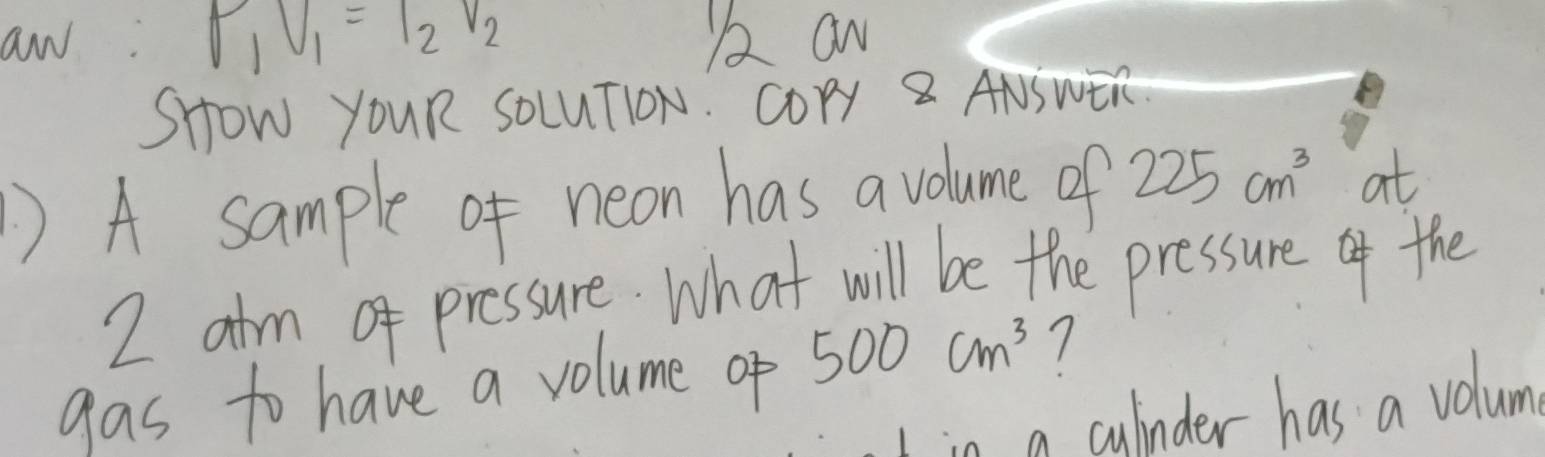 aw : P₁V₁ = P₂V₂ 1/2 cw
SHOW YOUR SOLUTION. COPY & ANSWER.
1.) A sample of neon has a volume of 225 cm³ at
2 atm of pressure. What will be the pressure of the
gas to have a volume of 500 cm³?
in a cylinder has a volume